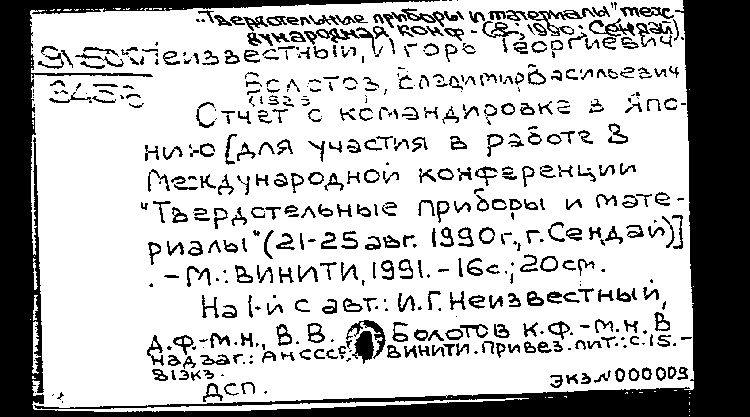 "Твердотельные приборы и материалы", меж-
дународная конф. (8; 1990; Сендай).
Неизвестный, Игорь Георгиевич
Болотов, Владимир Васильевич
Отчет о командировке в Япо-
нию [для участия в работе 8
Международной конференции
"Твердотельные приборы и мате-
риалы" (21-25 авг. 1990г., г. Сендай)]
. - М.: ВИНИТИ, 1991. - 16с.; 20см.
На 1-й с авт.: И.Г. Неизвестный,
д.ф.-м.н., В.В. Болотов к.ф.-м.н. В
надзаг.: АН СССР, ВИНИТИ. Привез. лит.: с. 15. -
81экз.
ДСП. ЭКЗ.N000009